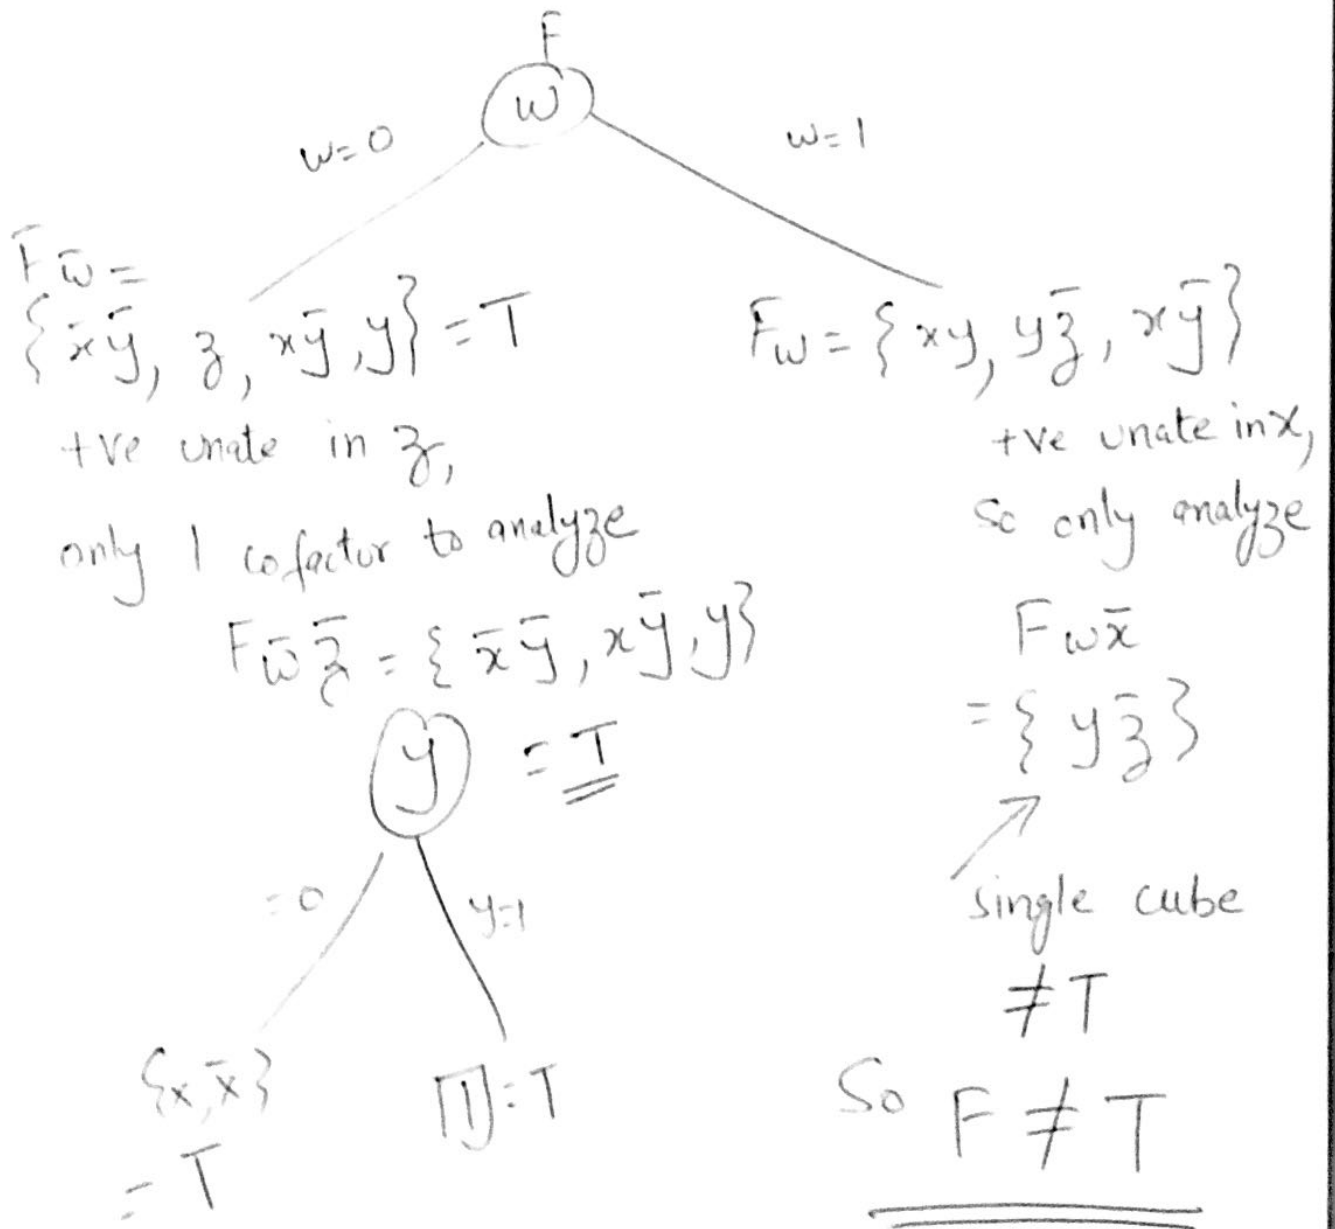 F
w
w=0
w=1
F w̄ =
{x̄ȳ, z, xȳ, y} = T
+ve unate in z,
only 1 cofactor to analyze
F w̄ z̄ = {x̄ȳ, xȳ, y}
= T
y
=0
y=1
{x, x̄}
= T
[1] = T
Fw = {xy, yz̄, xȳ}
+ve unate in x,
So only analyze
F w x̄
= {y z̄}
single cube
≠ T
So F ≠ T